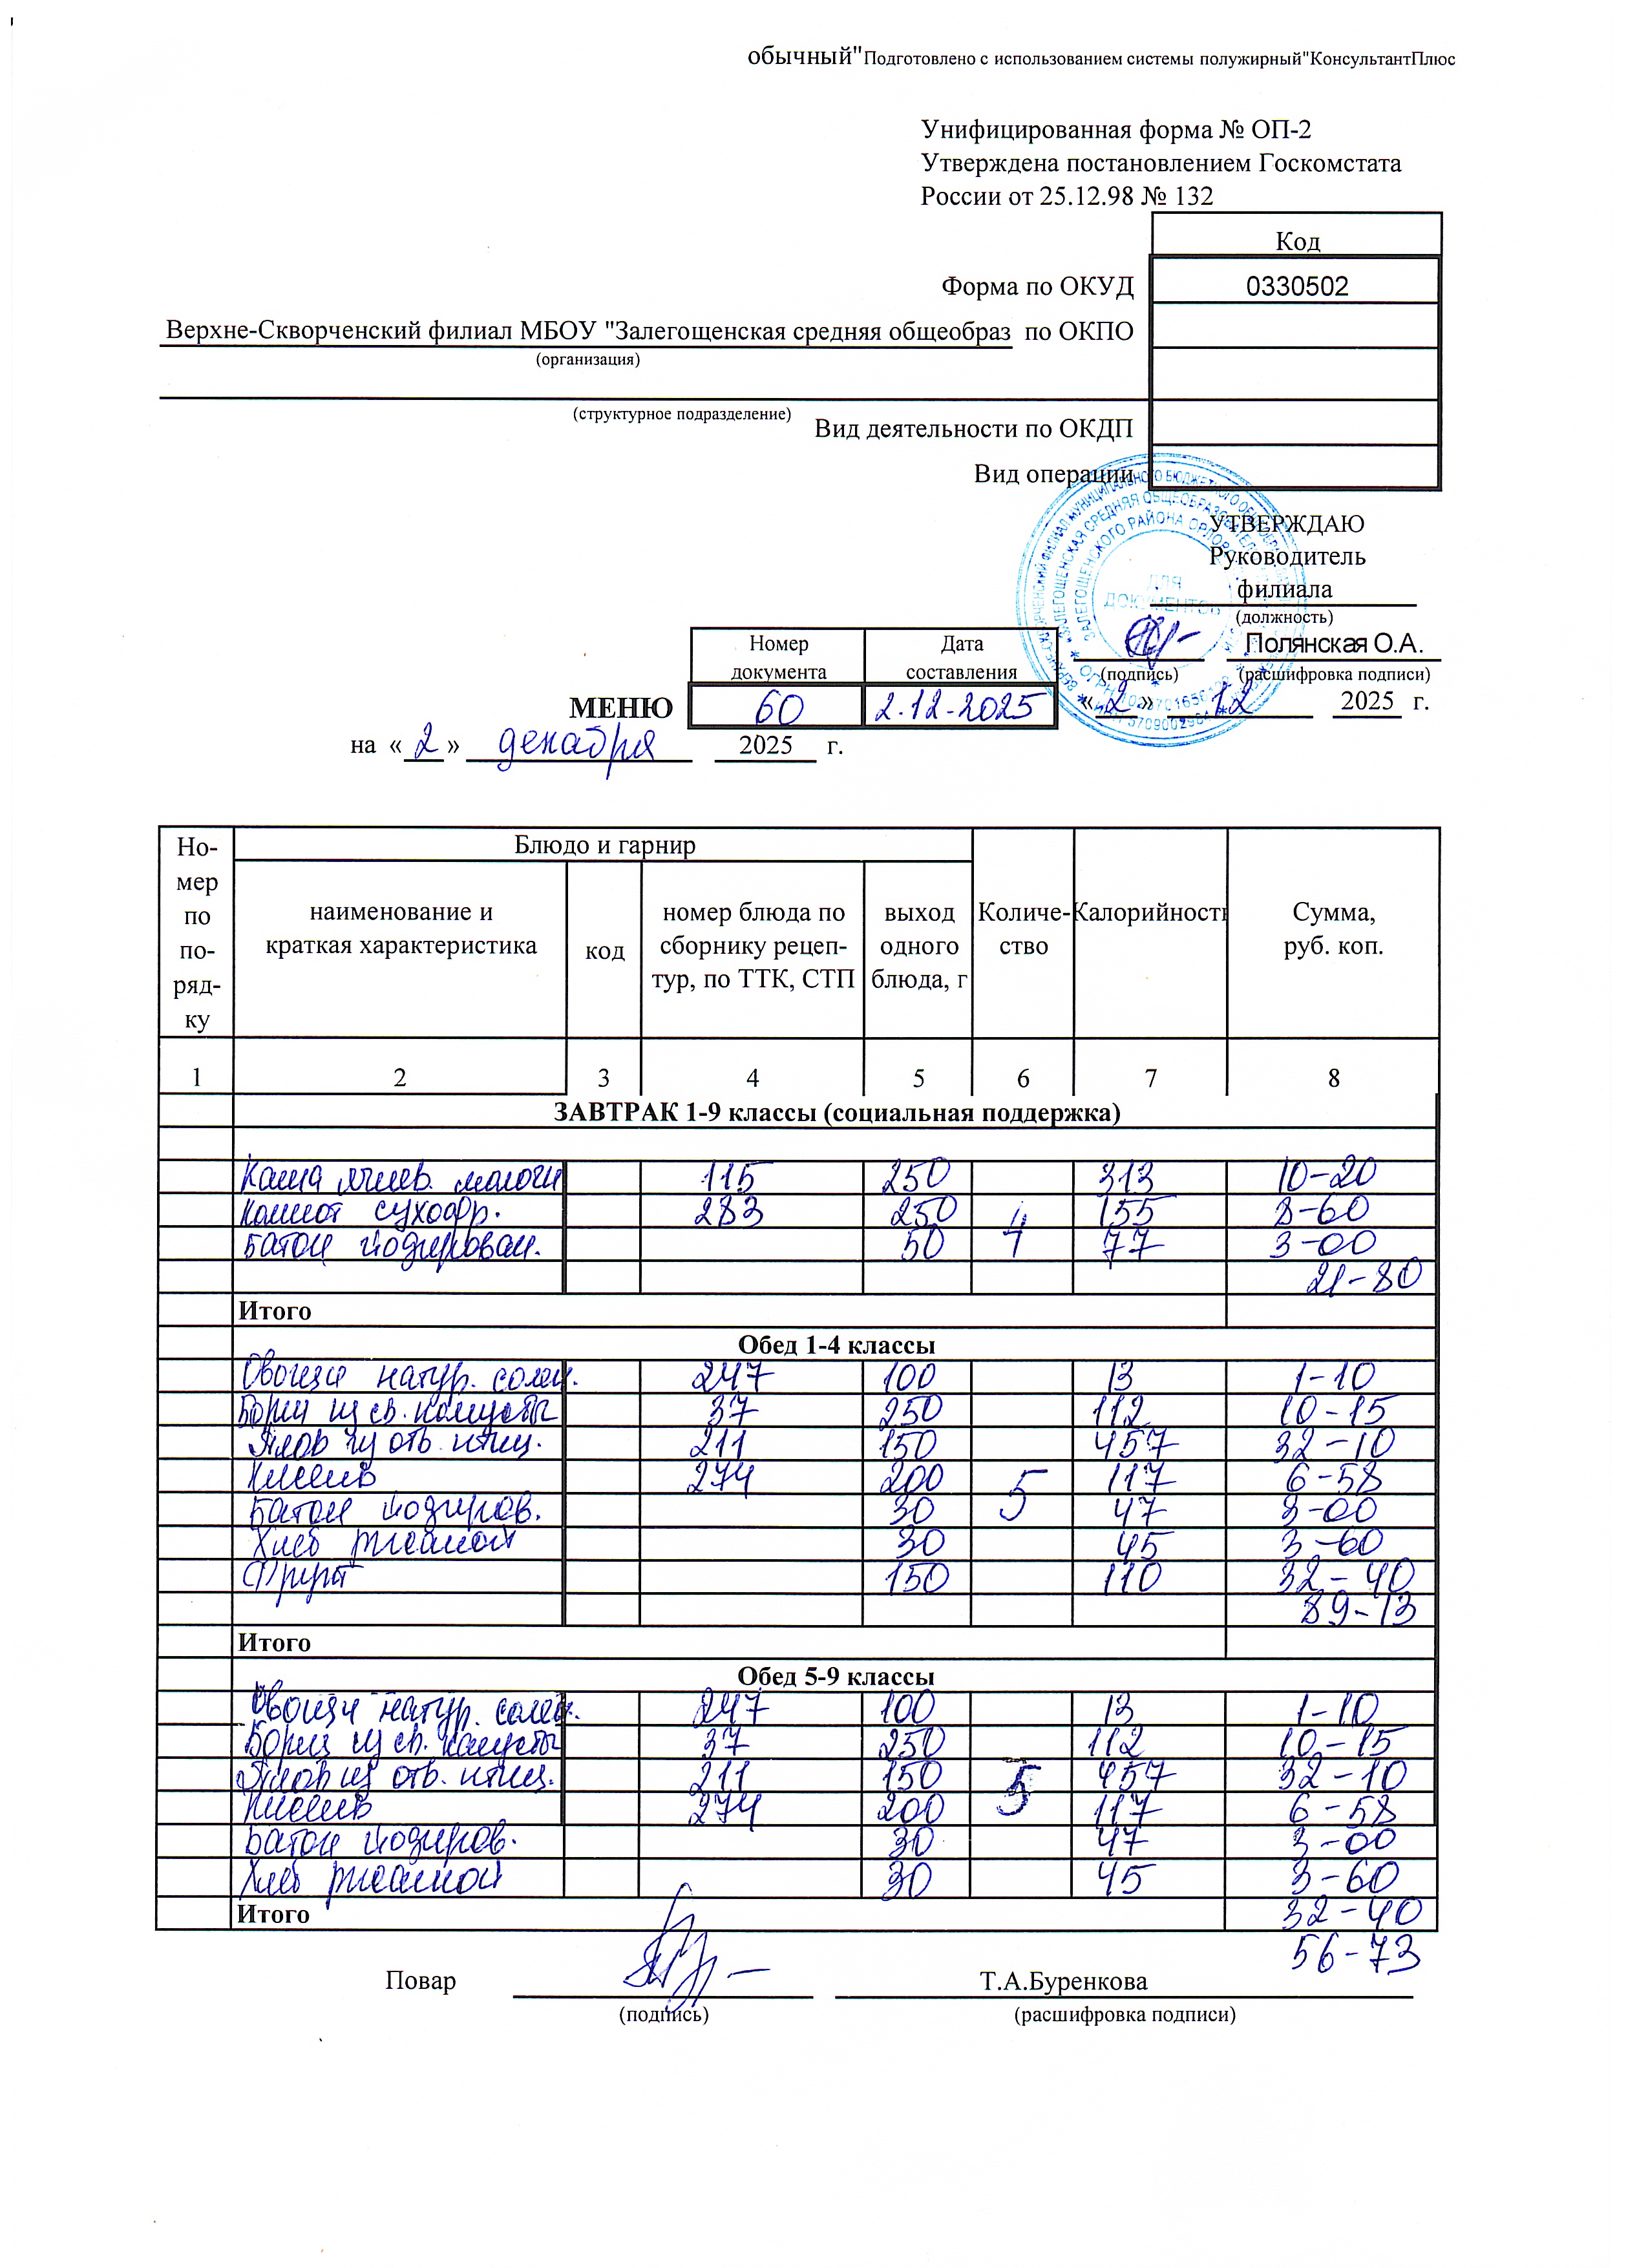 обычный"Подготовлено с использованием системы полужирный"КонсультантПлюс
Унифицированная форма № ОП-2
Утверждена постановлением Госкомстата
России от 25.12.98 № 132
Код
Форма по ОКУД 0330502
Верхне-Скворченский филиал МБОУ "Залегощенская средняя общеобраз по ОКПО
(организация)
(структурное подразделение)
Вид деятельности по ОКДП
Вид операции
УТВЕРЖДАЮ
Руководитель
филиала
(должность)
ДЛЯ
ДОКУМЕНТОВ
Полянская О.А.
(подпись) (расшифровка подписи)
«2» 12 2025 г.
Номер документа Дата составления
МЕНЮ 60 2.12-2025
на «2» декабря 2025 г.
Но-мер по по-ряд-ку Блюдо и гарнир Количе-ство Калорийность Сумма, руб. коп.
наименование и краткая характеристика код номер блюда по сборнику рецеп-тур, по ТТК, СТП выход одного блюда, г
1 2 3 4 5 6 7 8
ЗАВТРАК 1-9 классы (социальная поддержка)
Каша ячнев. молочн 115 250 313 10-20
Компот сухофр. 283 250 4 155 8-60
Батон йодирован. 50 77 3-00
21-80
Итого
Обед 1-4 классы
Овощи натур. солен. 247 100 13 1-10
Борщ из св. капусты 37 250 112 10-15
Плов из отв. птиц. 211 150 457 32-10
Кисель 274 200 5 117 6-58
Батон йодиров. 30 47 3-00
Хлеб ржаной 30 45 3-60
Фрукт 150 110 32-40
89-13
Итого
Обед 5-9 классы
Овощи натур. солен. 247 100 13 1-10
Борщ из св. капусты 37 250 112 10-15
Плов из отв. птиц. 211 150 5 457 32-10
Кисель 274 200 117 6-58
Батон йодиров. 30 47 3-00
Хлеб ржаной 30 45 3-60
Итого 32-40
56-73
Повар Т.А.Буренкова
(подпись) (расшифровка подписи)